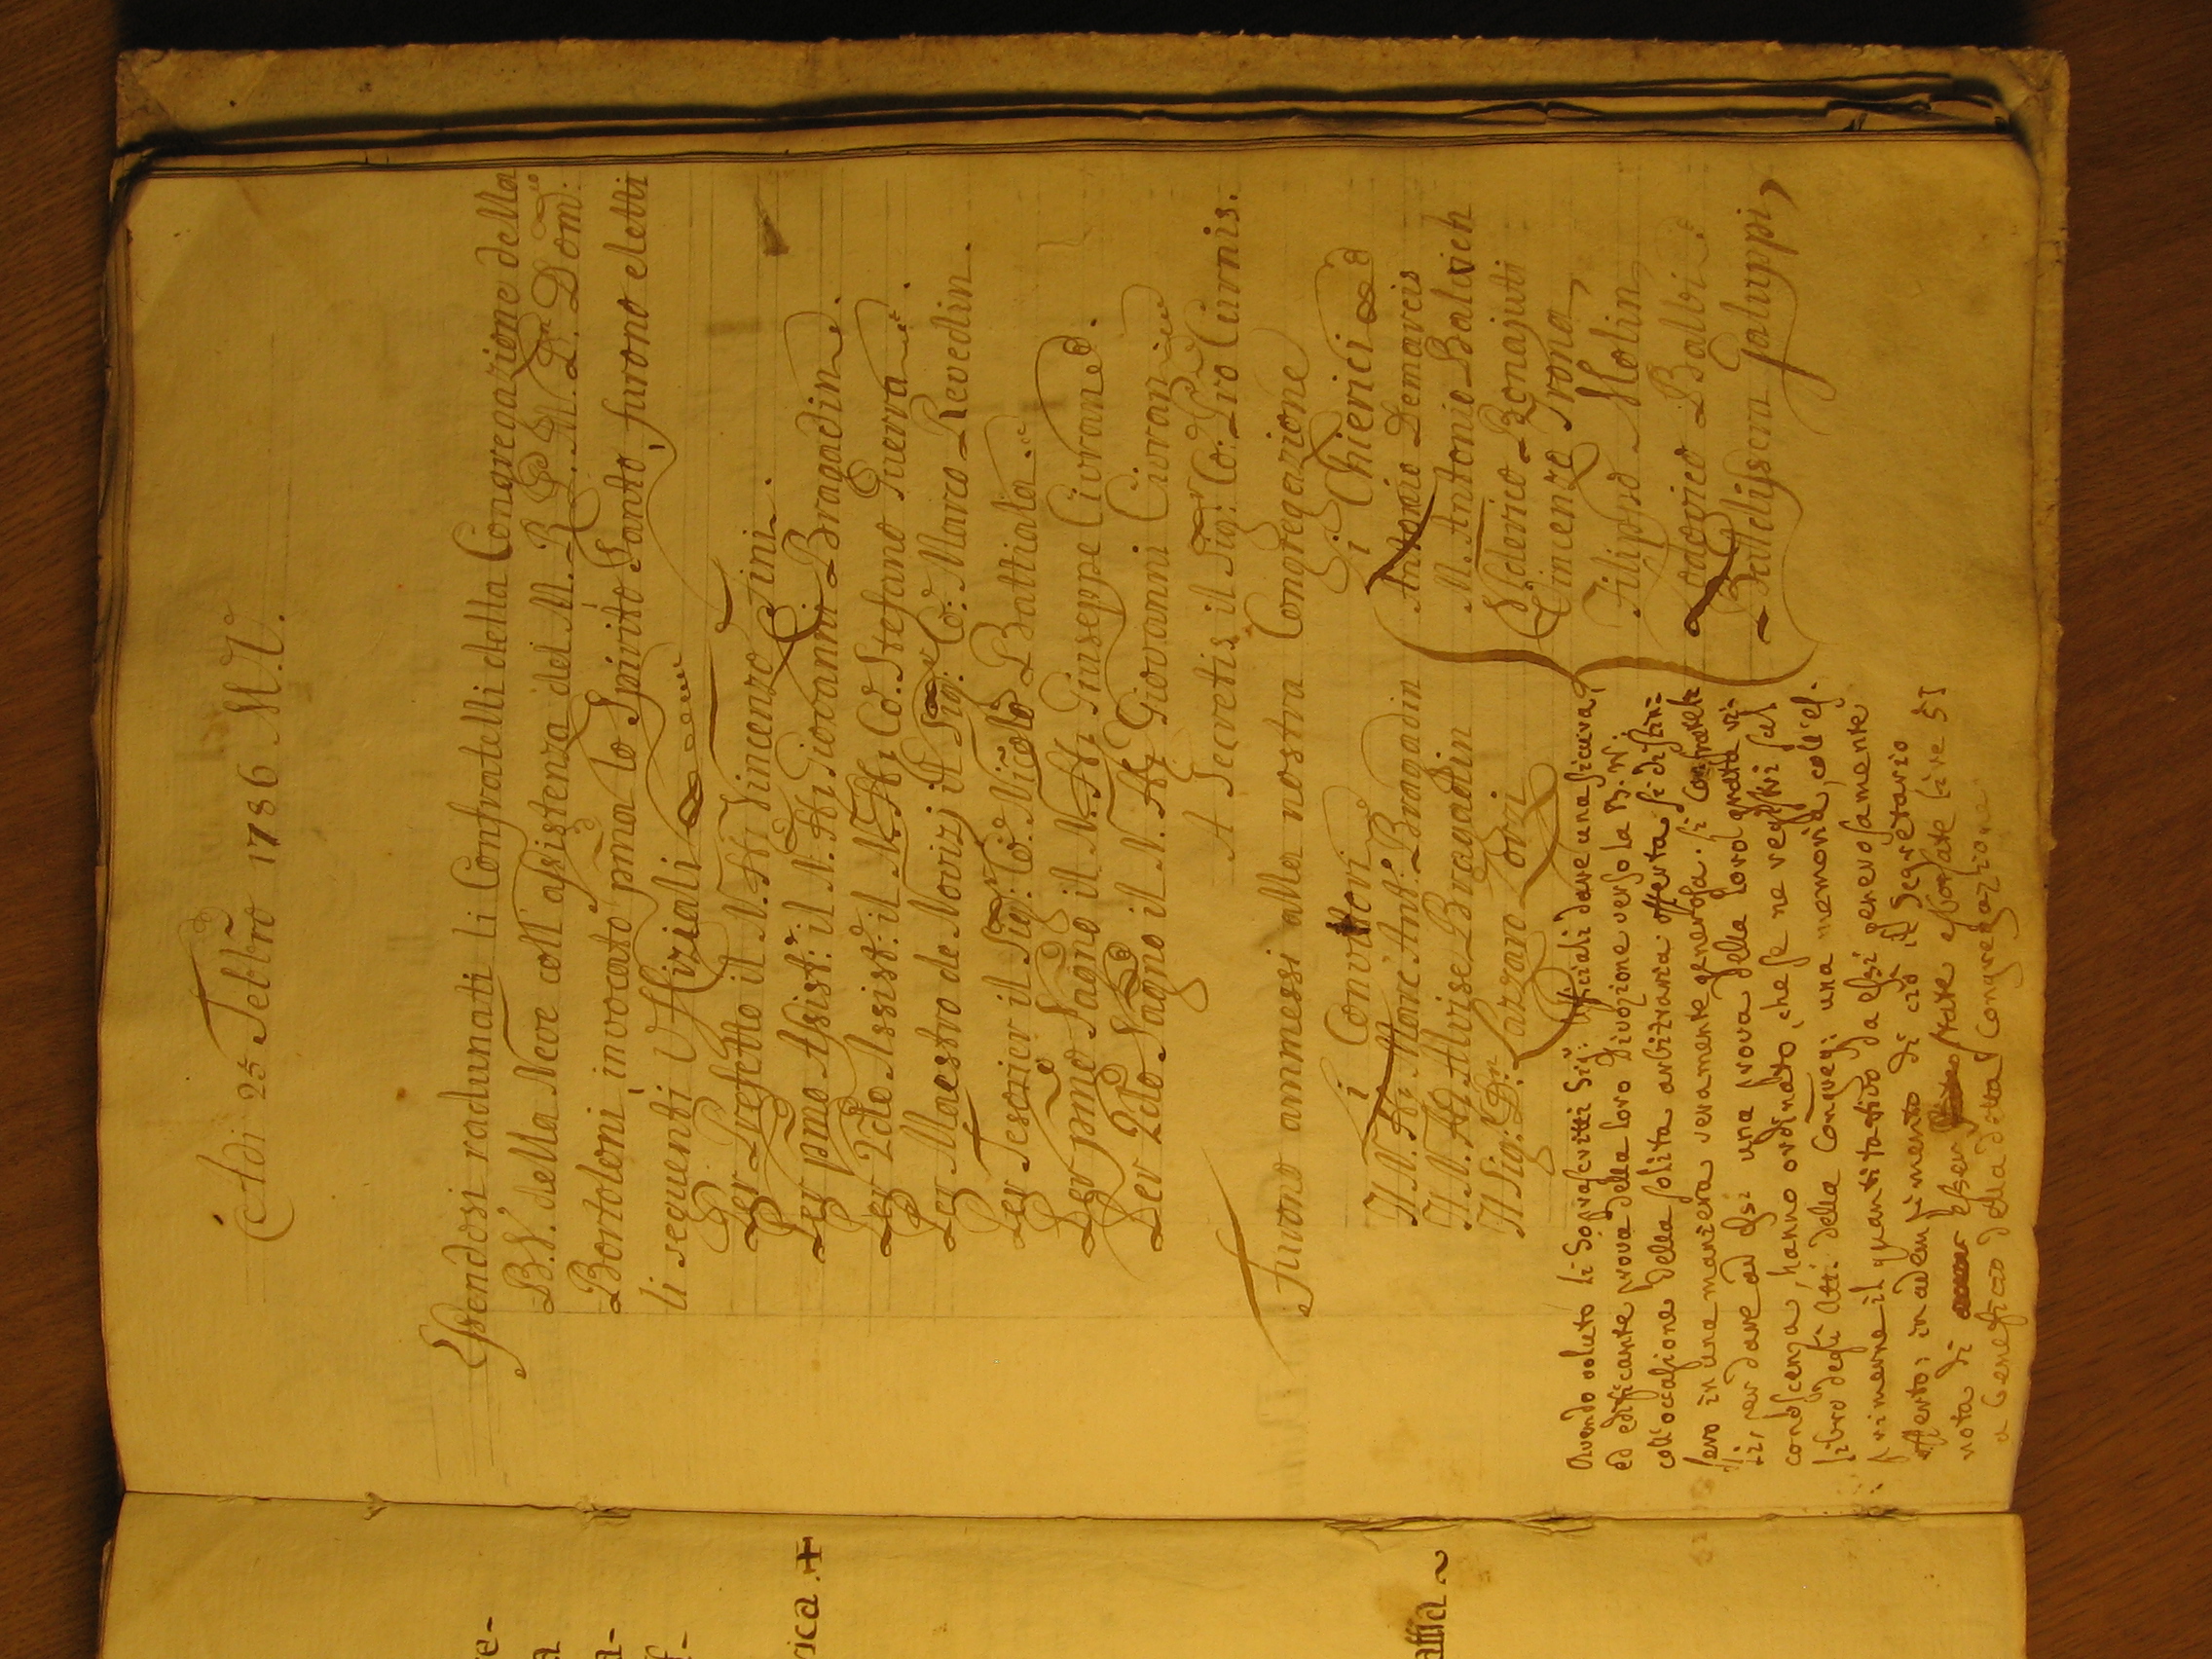 Adi 25 Febbrõ 1786 M.V.
Essendosi radunati li Confratelli della Congregazione della
B.V. della Neve coll'assistenza del M. R. P. M. Dn. Dom:co
Bortoloni, invocato pma lo Spirito Santo, furono eletti
li seguenti Uffiziali
Per Prefetto il N. H: Vincenzo Pini.
Per pmo Assist:e il N. H: Giovanni Bragadin.
Per 2do Assist:e il N. H: Co: Stefano Guerra.
Per Maestro de Novizj il Sig:r Co: Marco Revedin.
Per Tesorier il Sig:r Co: Nicolò Battiala.
Per pmo Sagno il N. H: Giuseppe Civran.
Per 2do Sagno il N. H: Giovanni Civran
A Secretis il Sig:r Co: Piro Curnis.
Furono ammessi alla nostra Congregazione
i Convittori
Il N. H: Marc'Ant:o Bragadin
Il N. H: Alvise Bragadin
Il Sig: Dn. Lazzaro Zorzi
i Chierici
Antonio Demarcis
M. Antonio Balovich
Federico Bonajuti
Vincenzo Trona
Filippo Molin
Lodovico Balbi.
Baldissera Galuppi
Avendo voluto li Soprascritti Sig:i Officiali dare una sicura,
ed edificante prova della loro Divozione verso la B.V.
coll'occasione della solita arbitraria offerta si distin=
sero in una maniera veramente generosa. Li Confratel=
li, per dare ad essi una prova della loro grata ri=
conoscenza, hanno ordinato, che se ne registri sul
libro degli Atti della Congreg: una memoria, coll'es=
primerne il quantitativo da essi generosamente
offerto: in adempimento di ciò il Segretario
nota di esser state esborsate lire 51
a beneficio della detta Congregazione.
re-
a
a-
f-
rica +
affia ~